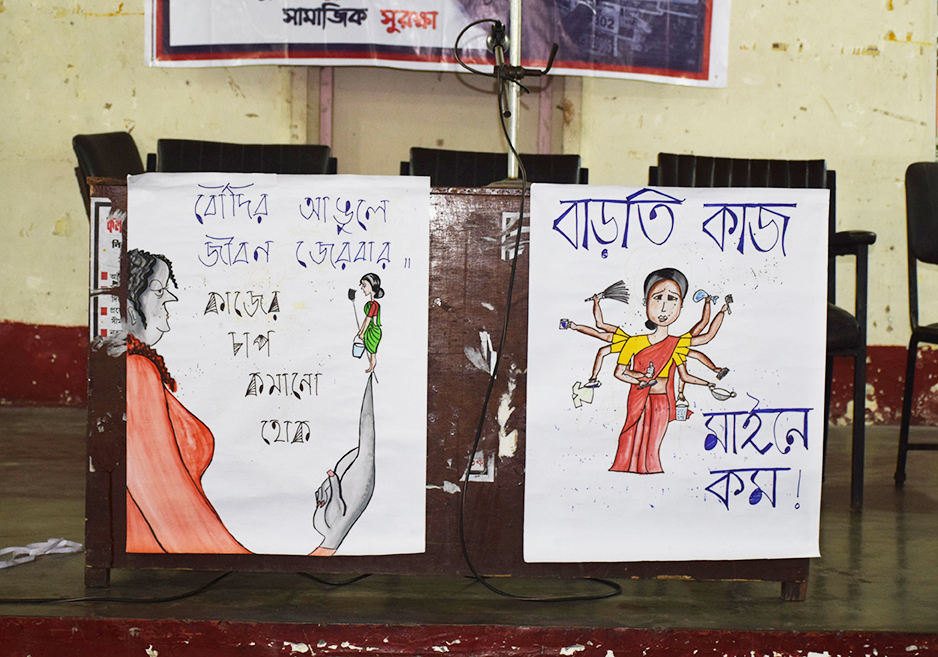 সামাজিক সুরক্ষা
বৌদির আঙুলে
জীবন জেরবার ..
কাজের
চাপ
কমানো
হোক
বাড়তি কাজ
মাইনে
কম !